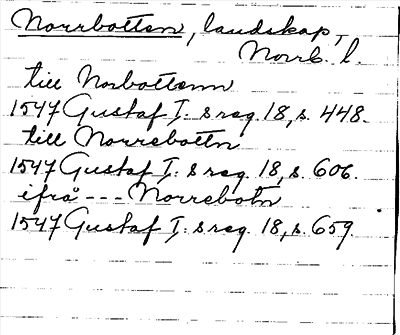 Norrbotten, landskap,
Norrb. l.
till Norbottenn
1547 Gustaf I: s reg. 18, s. 448.
till Norrebottn
1547 Gustaf I: s reg. 18, s. 606.
ifrå --- Norrebotn
1547 Gustaf I: s reg. 18, s. 659.